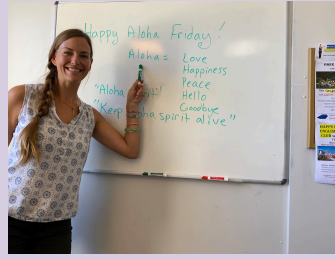 Happy Aloha Friday!
Aloha = Love
Happiness
Peace
Hello
Goodbye
"Aloha
"Keep spirit alive"